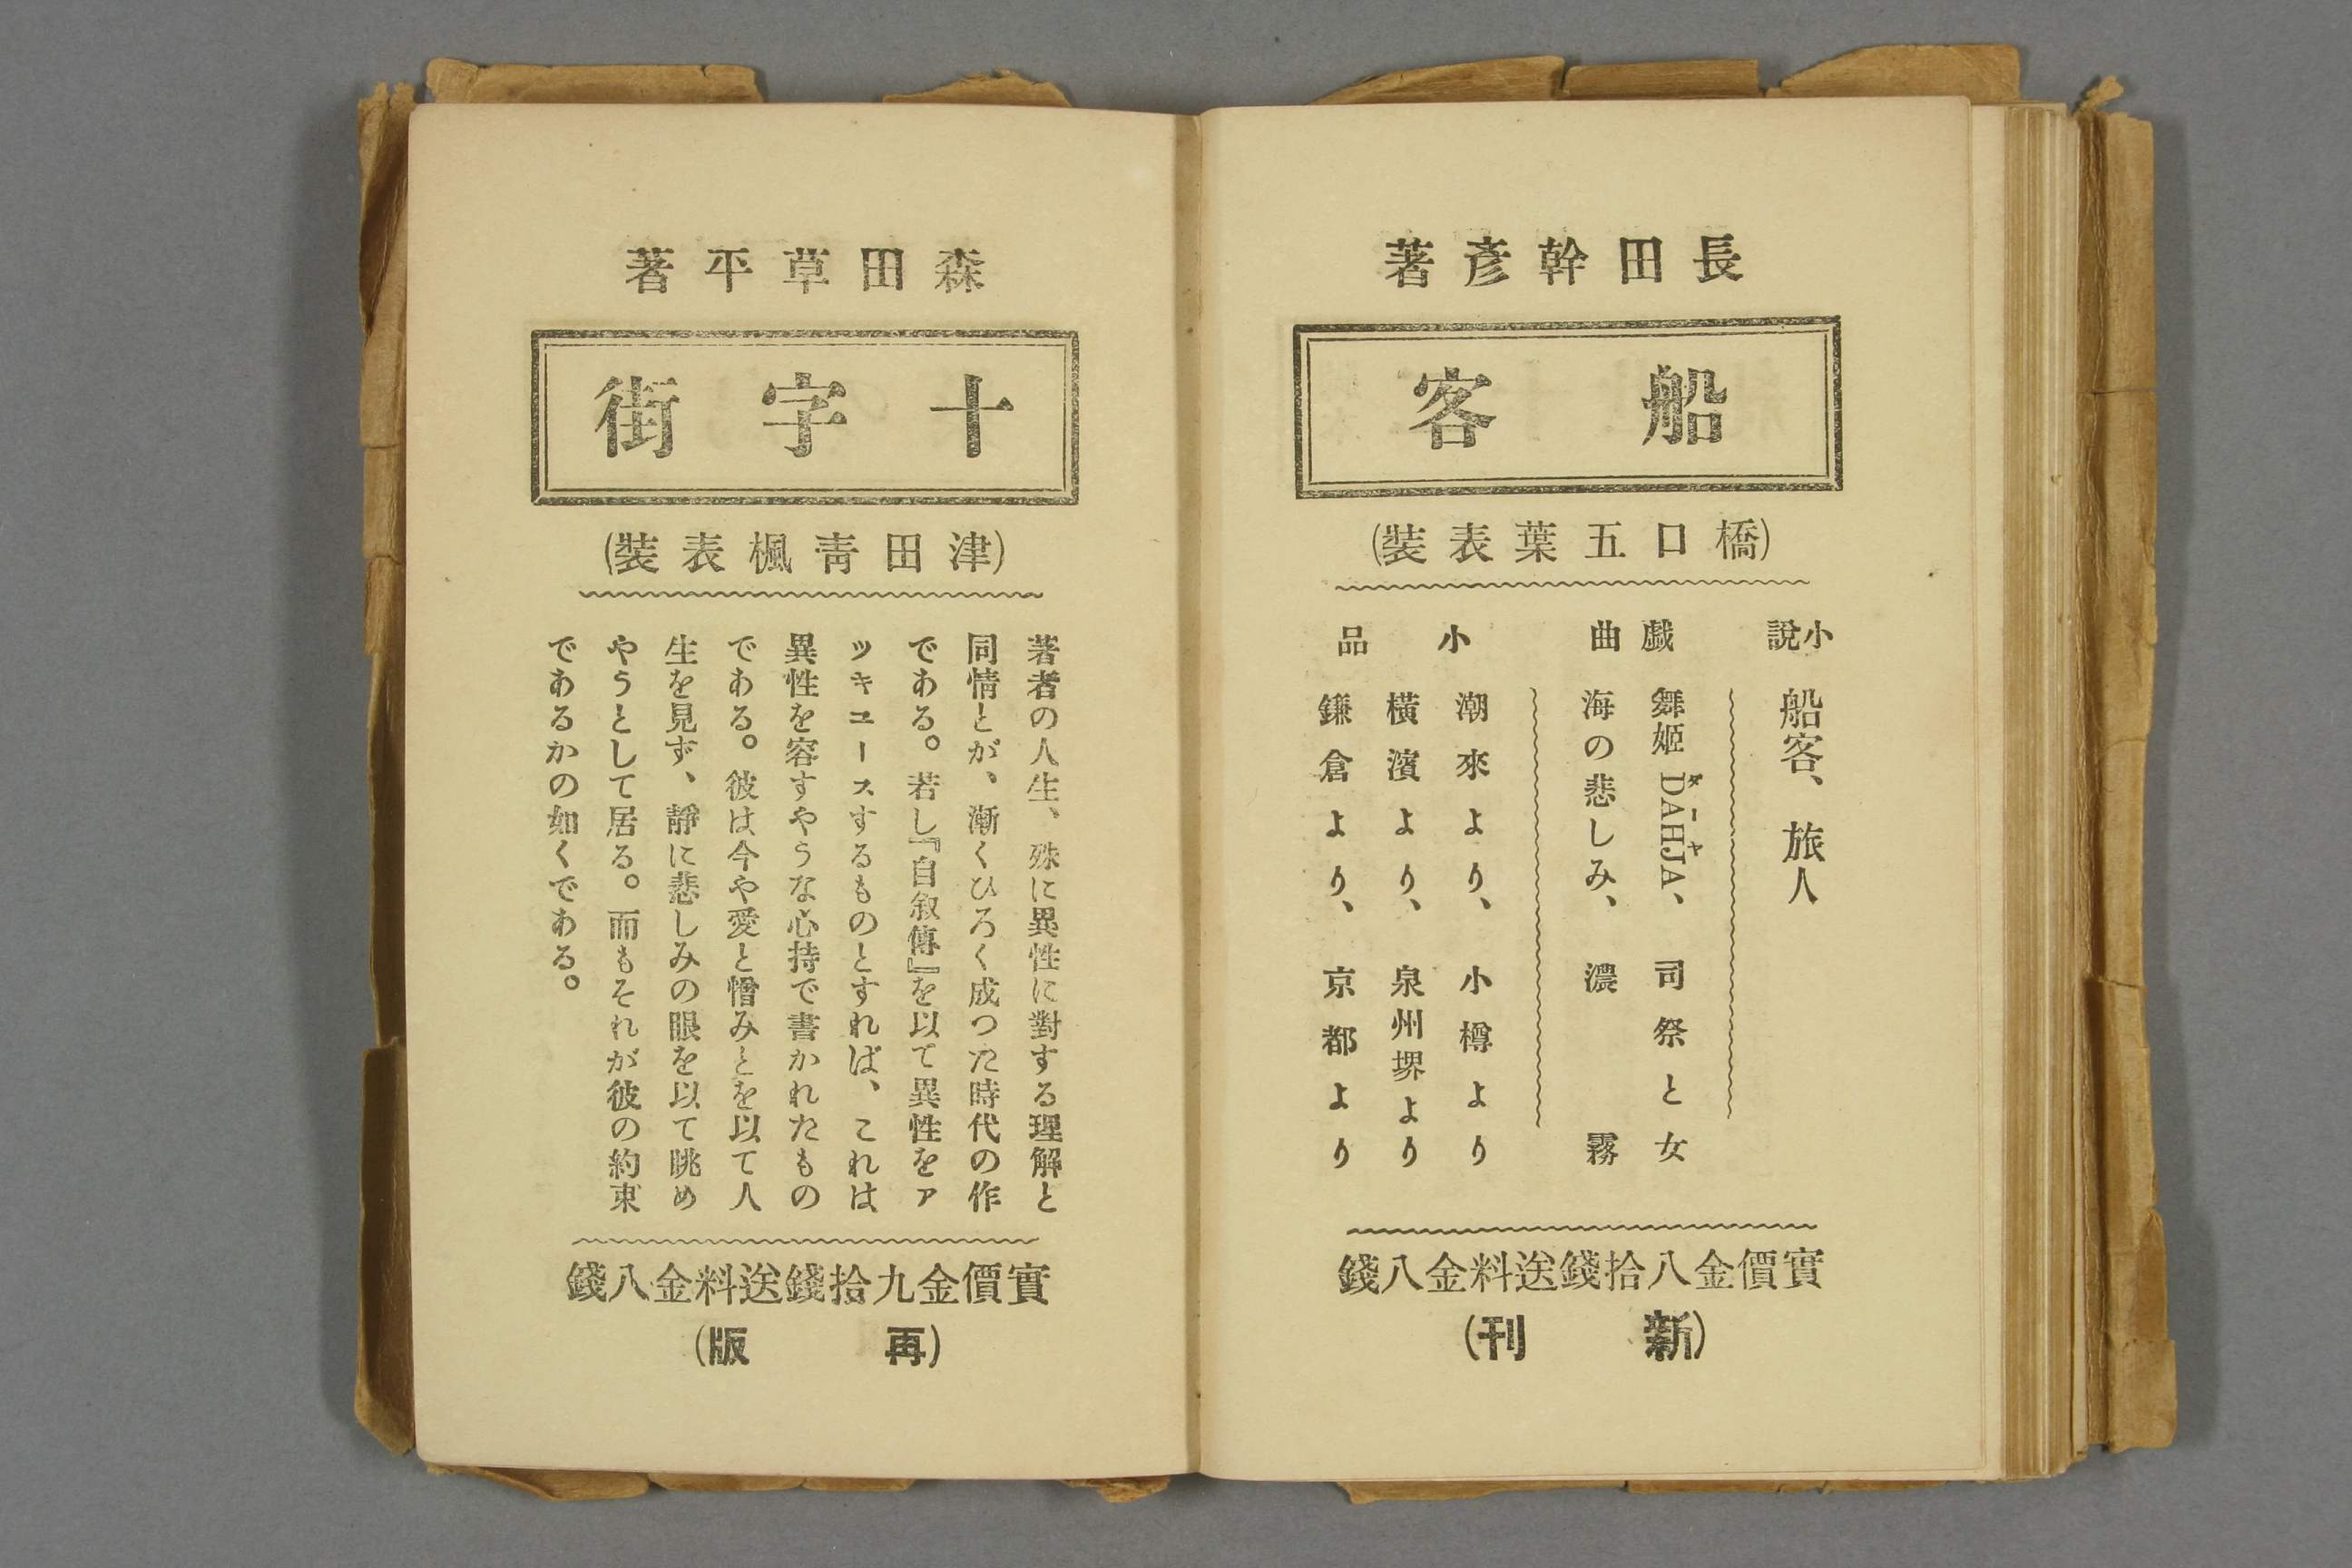 長田幹彥著
船客
(橋口五葉表裝)
小說
船客、旅人
戯曲
舞姬DAHJA、司祭と女
ダーヤ
海の悲しみ、濃霧
小品
潮來より、小樽より
橫濱より、泉州堺より
鎌倉より、京都より
實價金八拾錢送料金八錢
(新刊)
森田草平著
十字街
(津田靑楓表裝)
著者の人生、殊に異性に對する理解と
同情とが、漸くひろく成つた時代の作
である。若し『自叙傳』を以て異性をア
ツキユースするものとすれば、これは
異性を容すやうな心持で書かれたもの
である。彼は今や愛と憎みとを以て人
生を見ず、靜に悲しみの眼を以て眺め
やうとして居る。而もそれが彼の約束
であるかの如くである。
實價金九拾錢送料金八錢
(再版)